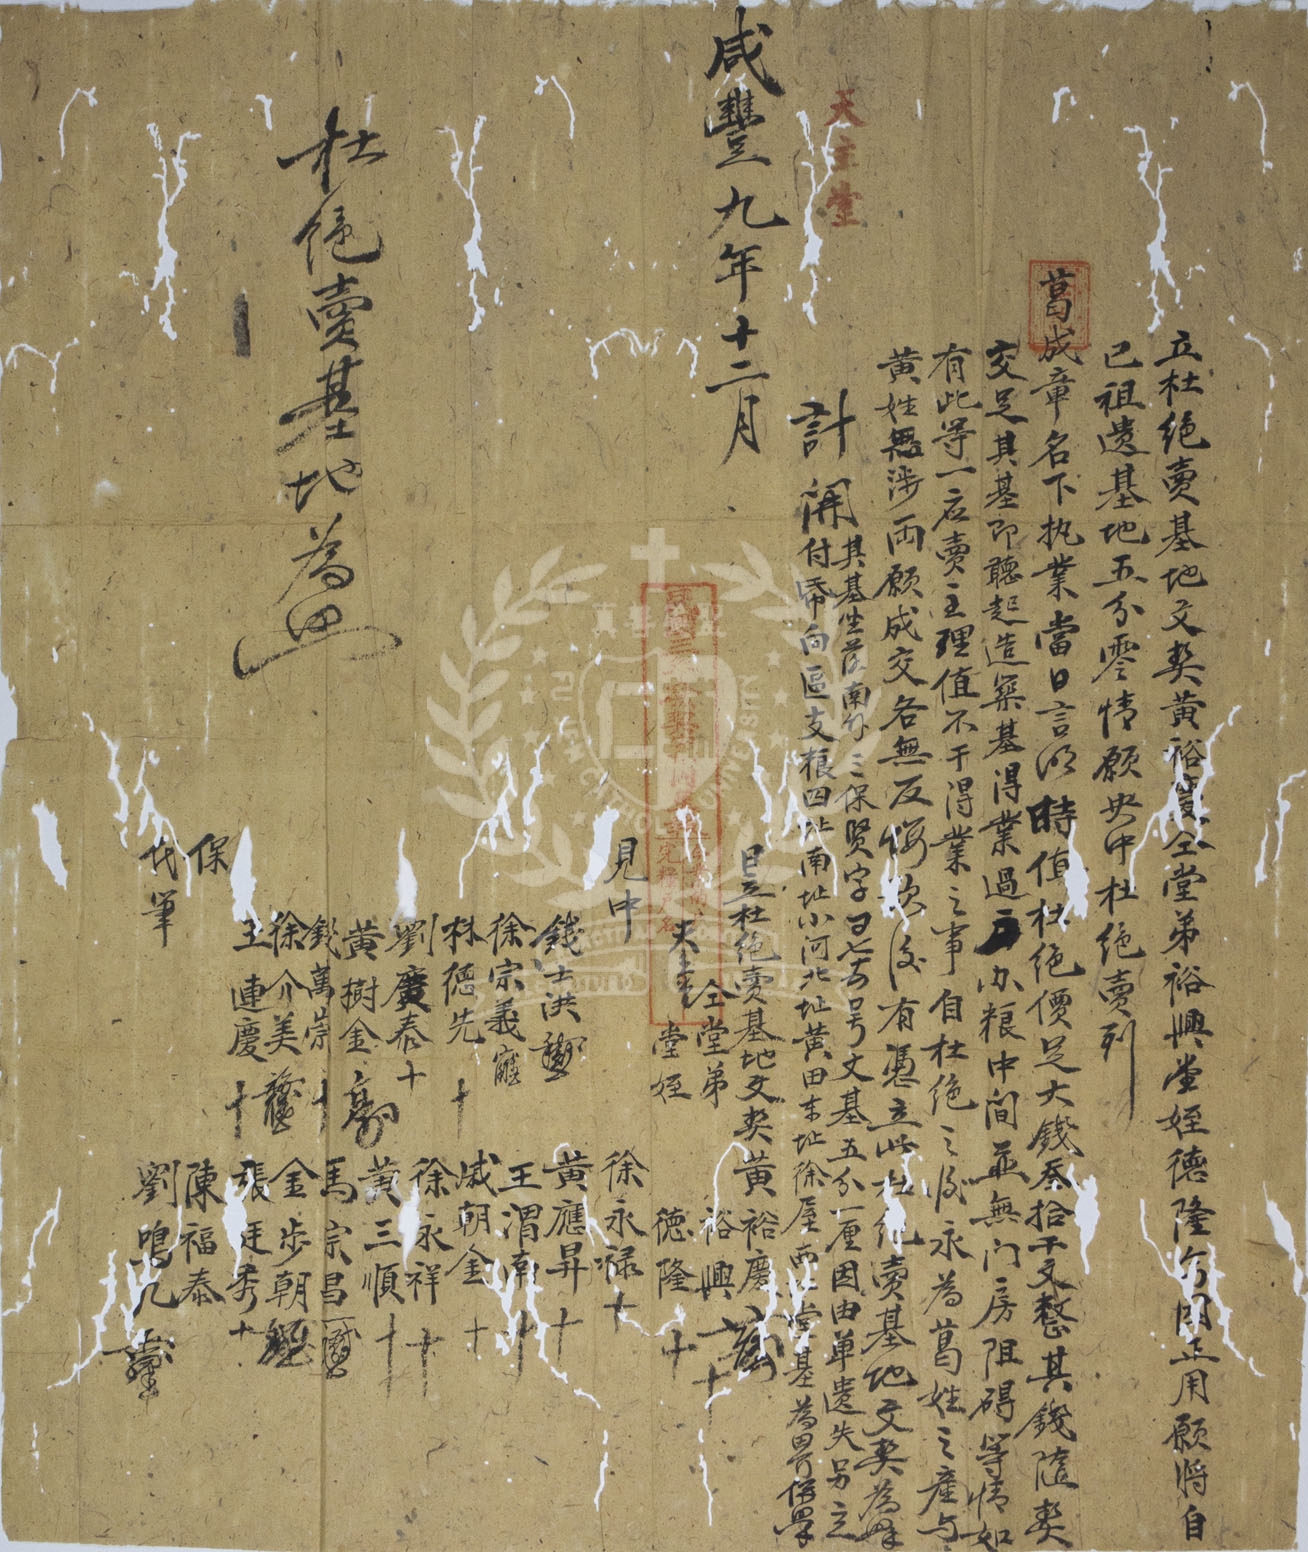 立杜絕賣基地文契黃裕慶仝堂弟裕興堂姪德隆今因正用願將自
己祖遺基地五分零情願央中杜絕賣列
葛成章名下执業當日言明時值杜絕價足大錢叁拾千文整其錢隨契
交足其基即聽起造築基得業過戶办粮中間並無门房阻碍等情如
有此等一应賣主理值不干得業之事自杜絕之後永為葛姓之產与
黃姓無涉両願成交各無反悔欲後有憑立此杜絕賣基地文契為㷉
計開其基坐落南竹三保賢字号七百号文基五分一厘因由单遗失另立
付㡒向區支粮四址南址小河北址黃田东址徐屋西址堂基為界併㷉
天主堂
咸豐九年十二月
日立杜絕賣基地文契黃裕慶
仝堂弟裕興十
堂姪德隆十
見中
徐永禄十
錢士洪
黃應昇十
徐宗義
王渭南十
林德先十
戚朝金十
劉廣泰十
徐永祥十
黃樹金
黃三順十
錢萬崇十
馬宗昌
徐介美
金步朝
王連慶十
張廷秀十
保
陳福泰
代筆
劉鳴九
杜絕賣基地為照